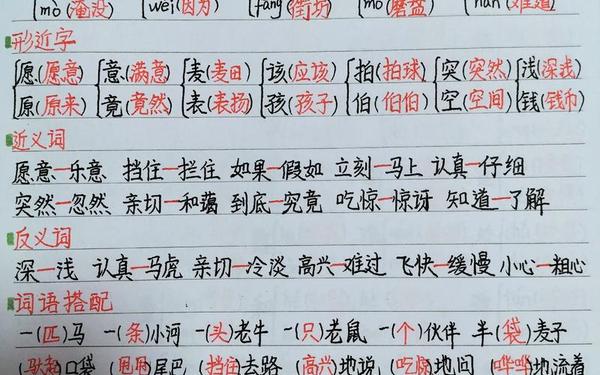 mò(淹没) wèi(因为) fāng(街坊) mò(磨盘) nán(难道)
形近字
愿(愿意) 意(满意) 麦(麦田) 该(应该) 拍(拍球) 突(突然) 浅(深浅)
原(原来) 竟(竟然) 表(表扬) 孩(孩子) 伯(伯伯) 空(空间) 钱(钱币)
近义词
愿意—乐意 挡住—拦住 如果—假如 立刻—马上 认真—仔细
突然—忽然 亲切—和蔼 到底—究竟 吃惊—惊讶 知道—了解
反义词
深—浅 认真—马虎 亲切—冷淡 高兴—难过 飞快—缓慢 小心—粗心
词语搭配
一(匹)马 一(条)小河 一(头)老牛 一(只)老鼠 一(个)伙伴 半(袋)麦子
(驮起)口袋 (甩甩)尾巴 (挡住)去路 (高兴)地说 (吃惊)地问 (哗哗)地流着